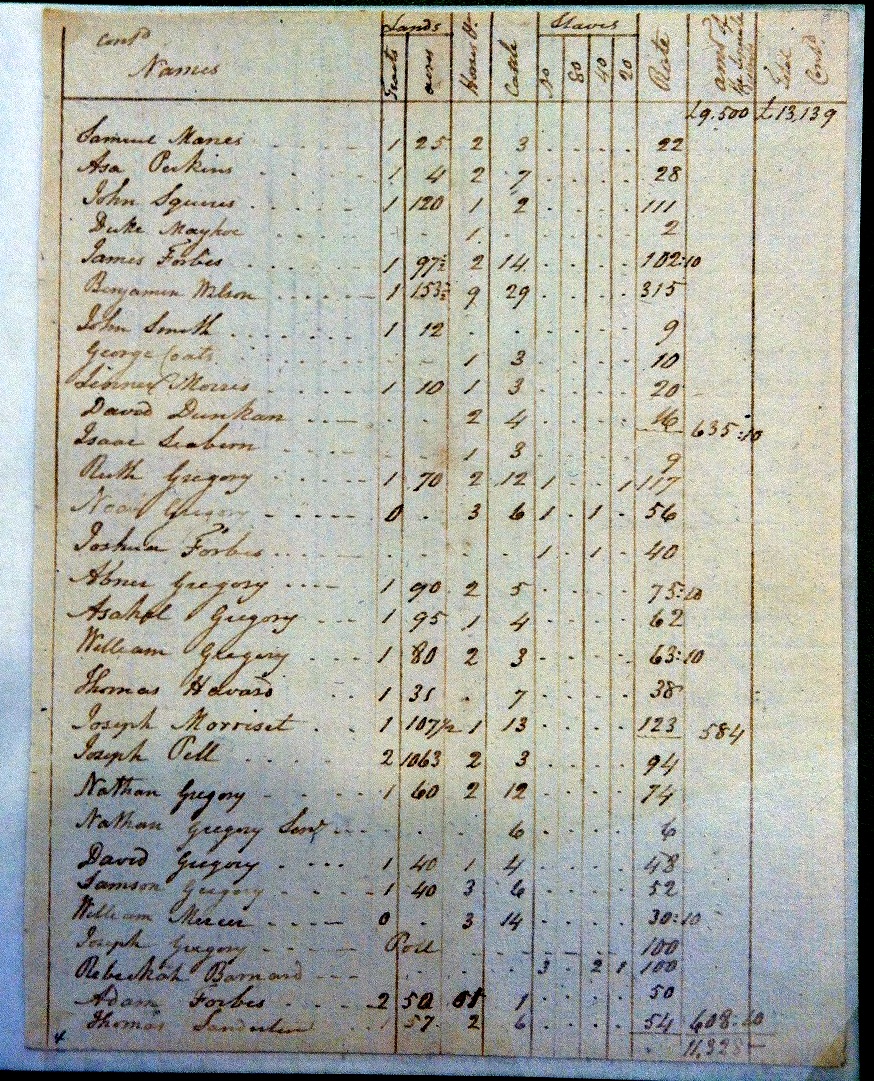 Contd Lands Slaves
Names Tracts acres Horses &c Cattle No 80 40 20 Rate amt of Contd
£9.500 £13,139
Samuel Manes 1 25 2 3 22
Asa Perkins 1 4 2 7 28
John Squires 1 120 1 2 111
Duke Mayhoe 1 2
James Forbes 1 97½ 2 14 102:10
Benjamin Wilson 1 153½ 9 29 315
John Smith 1 12 9
George Coats 1 3 10
Morris 1 10 1 3 20
David Dunkan 2 4 16 635:10
Isaac Seabern 1 3 9
Ruth Gregory 1 70 2 12 1 1 117
Noah Gregory 0 3 6 1 1 56
Joshua Forbes 1 1 40
Abner Gregory 1 90 2 5 75:10
Asahel Gregory 1 95 1 4 62
William Gregory 1 80 2 3 63:10
Thomas Havard 1 31 7 38
Joseph Morriset 1 107½ 1 13 123 584
Joseph Pell 2 1063 2 3 94
Nathan Gregory 1 60 2 12 74
Nathan Gregory Senr 6 6
David Gregory 1 40 1 4 48
Samson Gregory 1 40 3 6 52
William Mercer 0 3 14 30:10
Joseph Gregory Poll 100
Rebeckah Barnard 3 2 1 100
Adam Forbes 2 50 1 50
Thomas Sanderlin 1 57 2 6 54 608:10
11,328